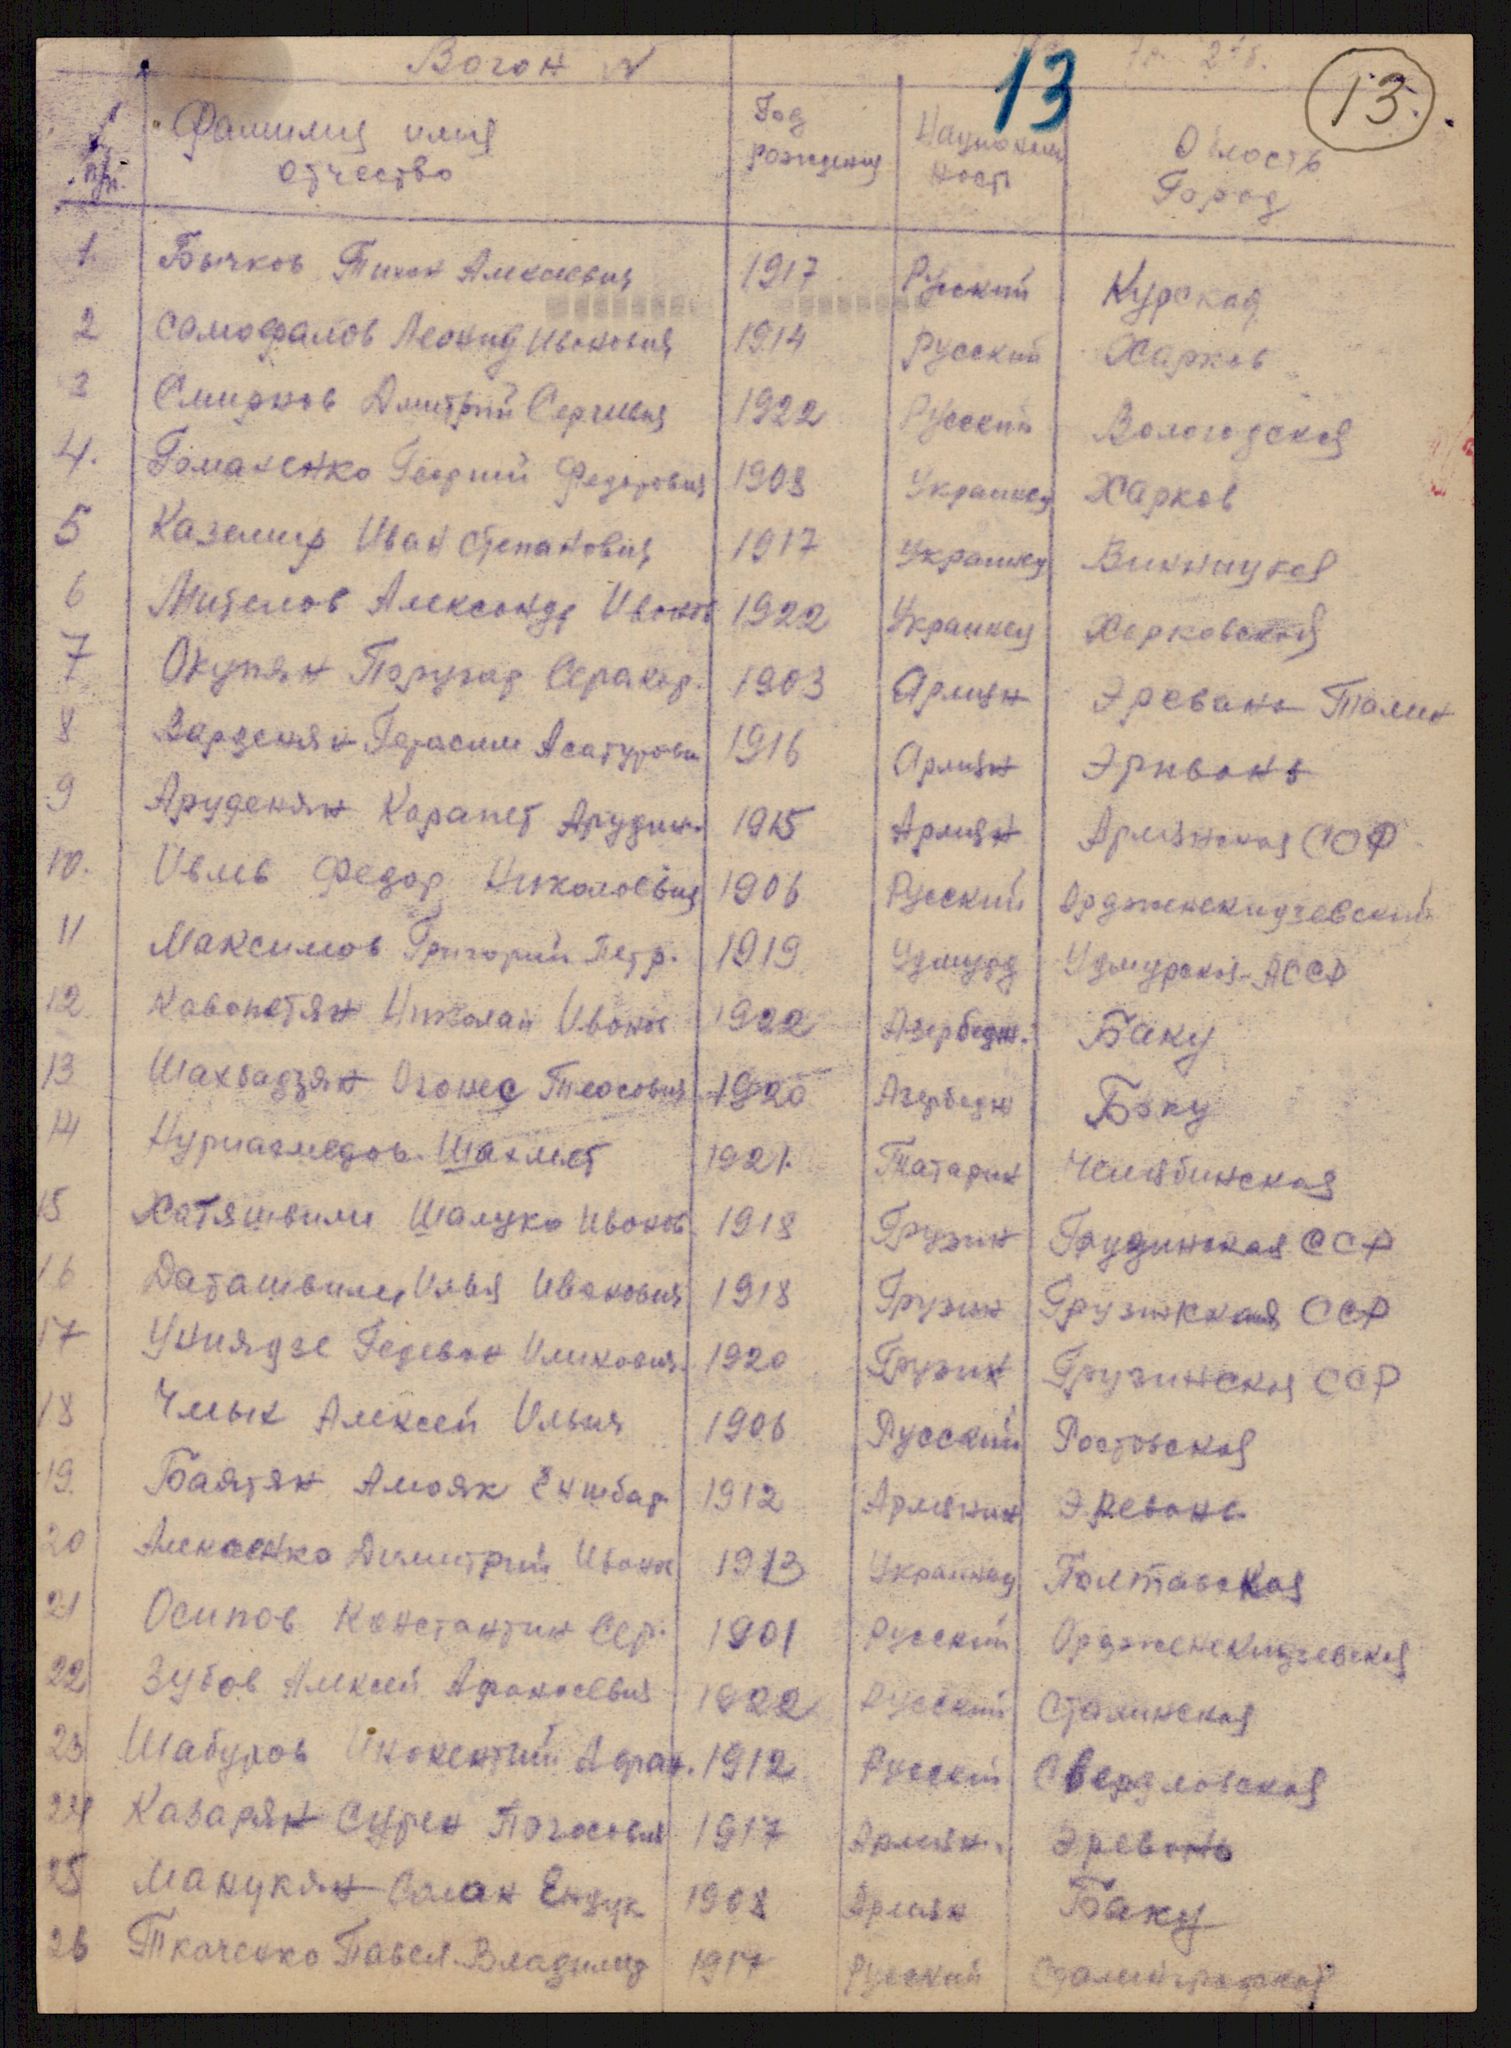 Вогон №
13
13.
№ п/п. Фамилия имя отчество Год рождения Национальность Область Город
1. Бычков Тихон Алексеевич 1917 Русский Курская
2 Самофалов Леонид Иванович 1914 Русский Харков
3 Смирнов Дмитрий Сергиевич 1922 Русский Вологодская
4. Гомаленко Георгий Федорович 1908 Украинец Харков
5 Каземир Иван Степанович 1917 Украинец Винницкая
6 Александр Иванов 1922 Украинец Харковская
7 Окупян 1903 Армян Эревань Талин
8 Варденян Герасим Асатурови 1916 Армян Эривань
9 Аруденян Карапет Арудин. 1915 Армян Армянская ССР
10. Ивлев Федор Николоевич 1906 Русский Орджененкидзевский
11 Максимов Григорий Петр. 1919 Удмурд Удмурская АССР
12. Николай Иванов 1922 Азербедж. Баку
13 Шахбадзян Огонес 1920 Азербедж Баку
14 Нуриагмедов Шахмет 1921. Татарин Челябинская
15 Хатяшвили Шалуко Иванов 1918 Грузин Грудинская ССР
16 Даташвили Илья Иванович 1918 Грузин Грузинская ССР
17 Униядзе Гедеван Иликович. 1920 Грузин Грузинская ССР
18 Чмых Алексей Ильич 1906 Русский Ростовская
19. Баятян Амояк 1912 Армянин Эревань
20 Алексенко Димитрий Иванов 1913 Украинец Полтавская
21 Осипов Константин Сер. 1901 Русский Ордженекидзевская
22 Зубов Алексей Афанасевич 1922 Русский Сталинская
23 Шабуров Инокентий Афан. 1912 Русский Свердловская
24 Казарян Сурен Погосович 1917 Армян. Эревань
25 Манукян 1908 Армян Баку
26 Ткаченко Павел Владимир 1917 Русский Сталинградская